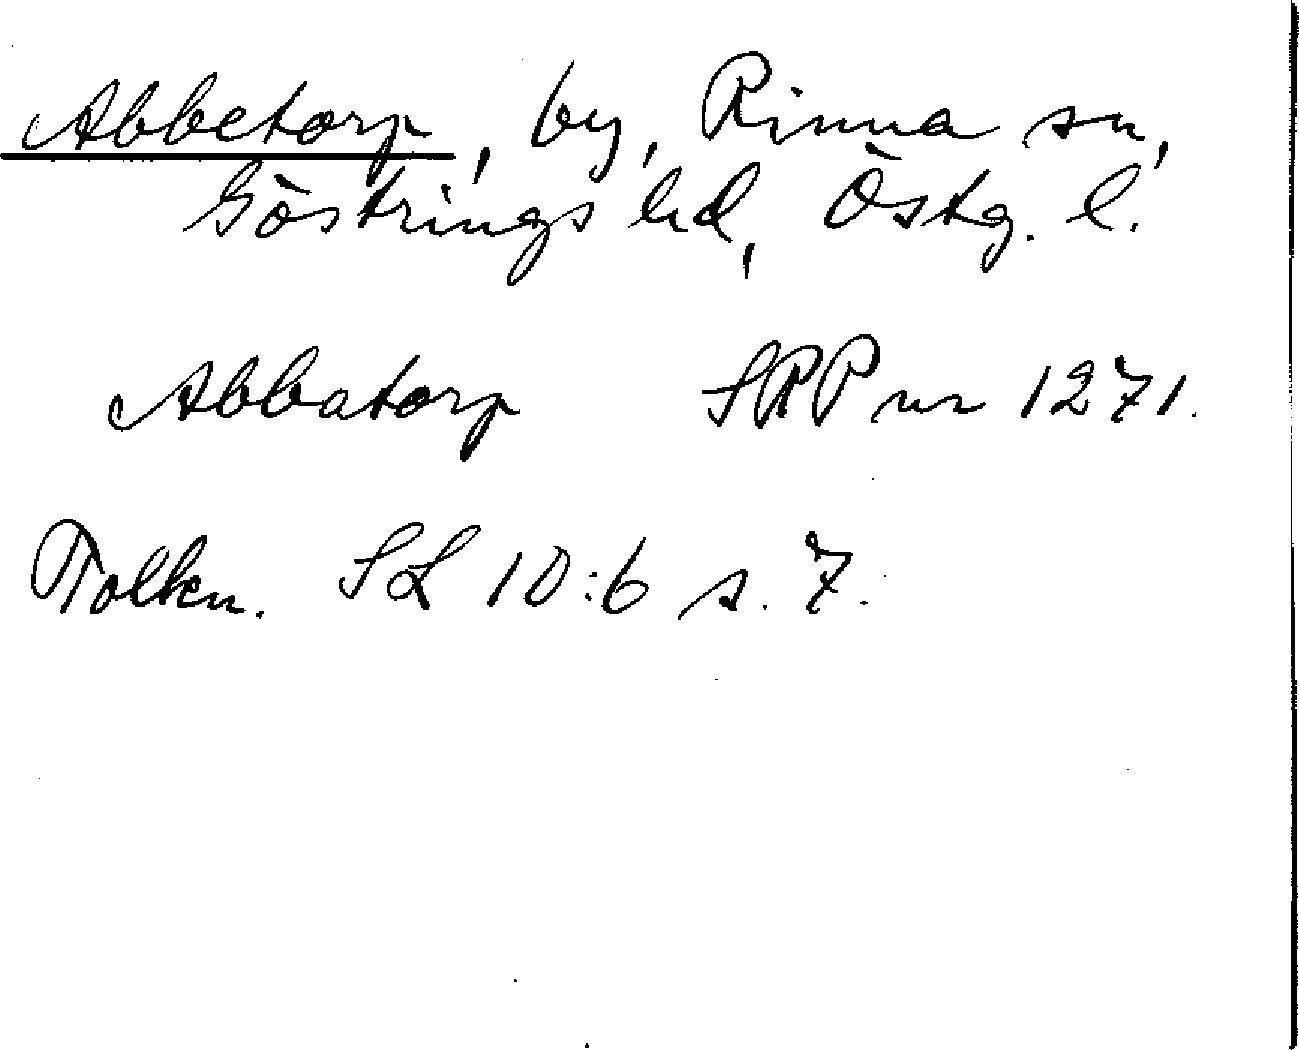 Abbetorp, by, Rinna sn,
Göstrings hd, Östg. l.
Abbatorp SRP nr 1271.
Tolkn. SL 10:6 s. 7.